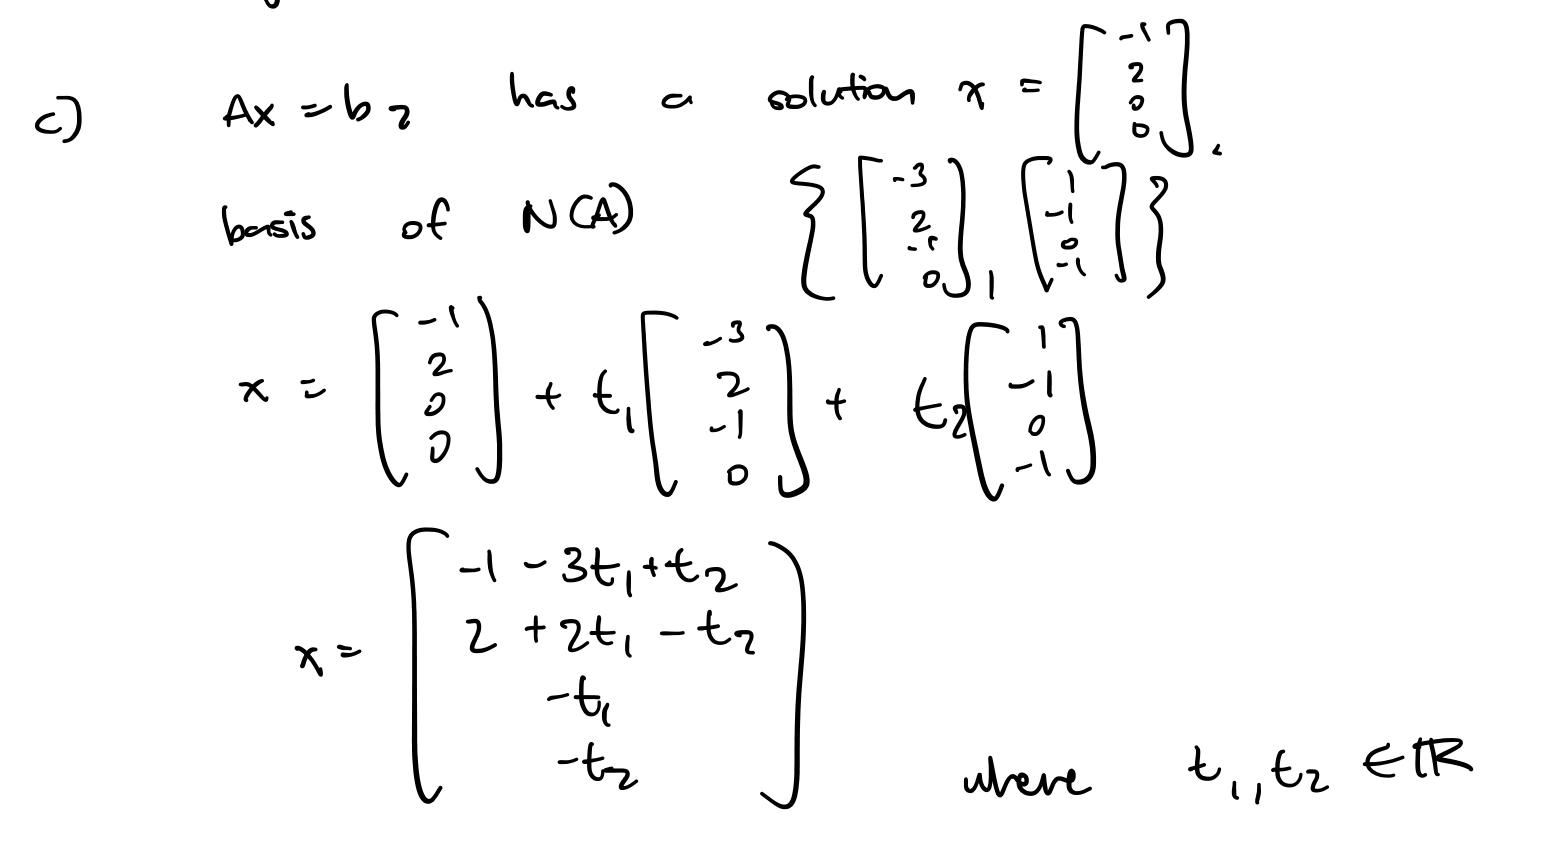 c) Ax = b₂ has a solution x = [-1 2 0 0].
basis of N(A) {[-3 2 -1 0], [1 -1 0 -1]}
x = [-1 2 0 0] + t₁ [-3 2 -1 0] + t₂ [1 -1 0 -1]
x = [-1 - 3t₁ + t₂
2 + 2t₁ - t₂
-t₁
-t₂] where t₁, t₂ ∈ ℝ